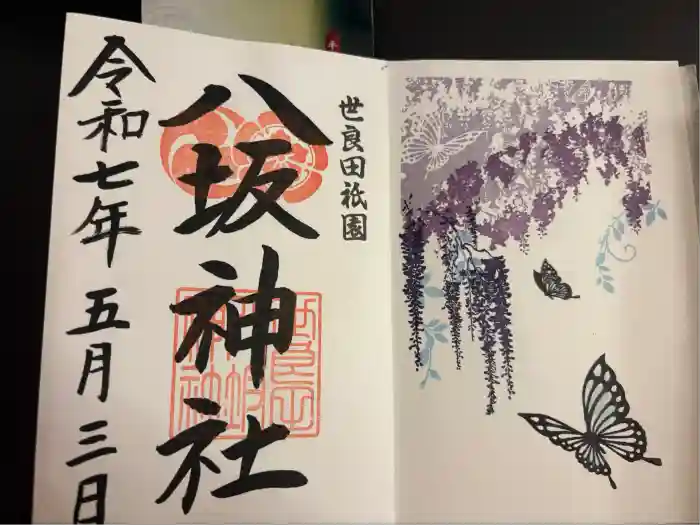 世良田祇園
八坂神社
令和七年五月三日